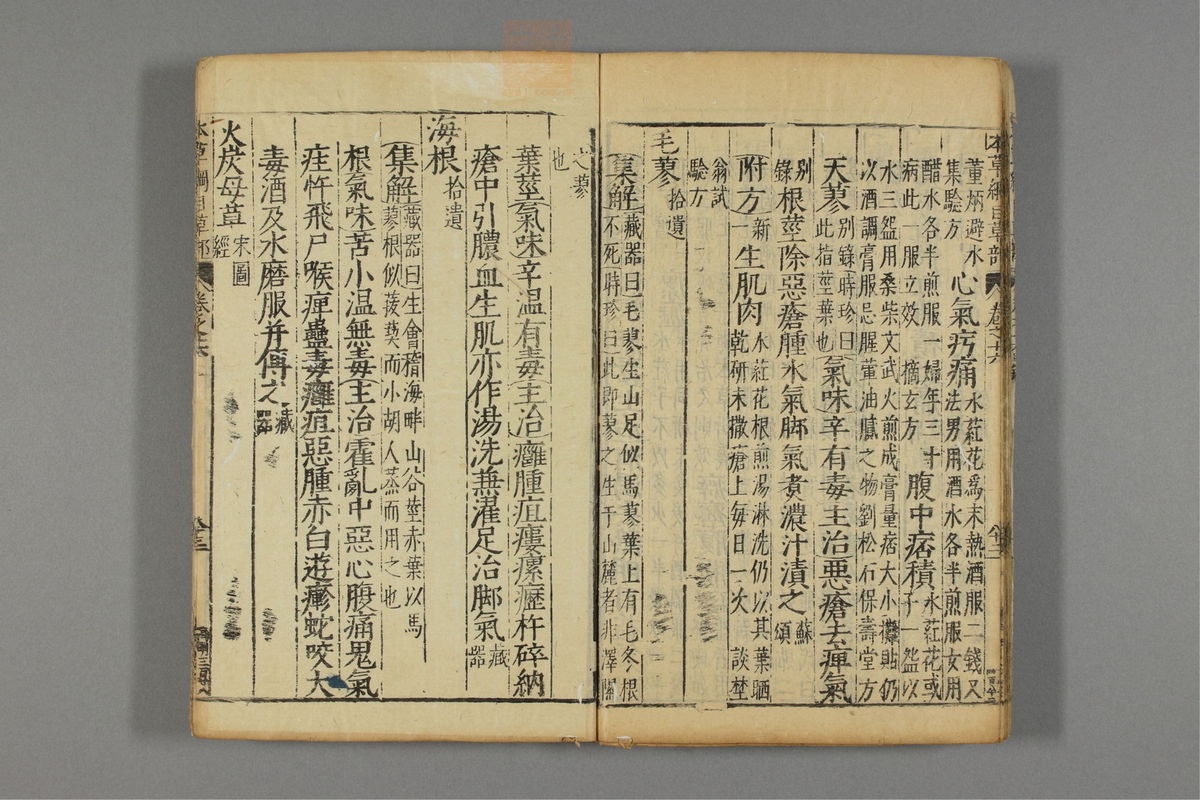 本草綱目草部 卷之十六
董炳避水集驗方 心氣疞痛 水葒花為末熱酒服二錢又法男用酒水各半煎服女用
醋水各半煎服一婦年三十病此一服立效 摘玄方 腹中痞積 水葒花或子一盌以
水三盌用桑柴文武火煎成膏量痞大小攤貼仍以酒調膏服忌腥葷油膩之物劉松石保壽堂方
天蓼 別錄時珍曰此指莖葉也 氣味辛有毒主治惡瘡去痺氣
別錄 根莖除惡瘡腫水氣脚氣煮濃汁漬之 蘇頌
附方 新一 生肌肉 水葒花根煎湯淋洗仍以其葉晒乾研末撒瘡上每日一次 談埜
翁試驗方
毛蓼 拾遺
集解 藏器曰毛蓼生山足似馬蓼葉上有毛冬根不死時珍曰此即蓼之生于山麓者非澤隰
之蓼也
葉莖氣味辛溫有毒主治癰腫疽瘻瘰癧杵碎納
瘡中引膿血生肌亦作湯洗兼濯足治脚氣 藏器
海根 拾遺
集解 藏器曰生會稽海畔山谷莖赤葉以馬蓼根似菝葜而小胡人蒸而用之也
根氣味苦小溫無毒主治霍亂中惡心腹痛鬼氣
疰忤飛尸喉痺蠱毒癰疽惡腫赤白遊瘮蛇咬犬
毒酒及水磨服并傅之 藏器
火炭母草 宋圖經
本草綱目草部 卷之十六